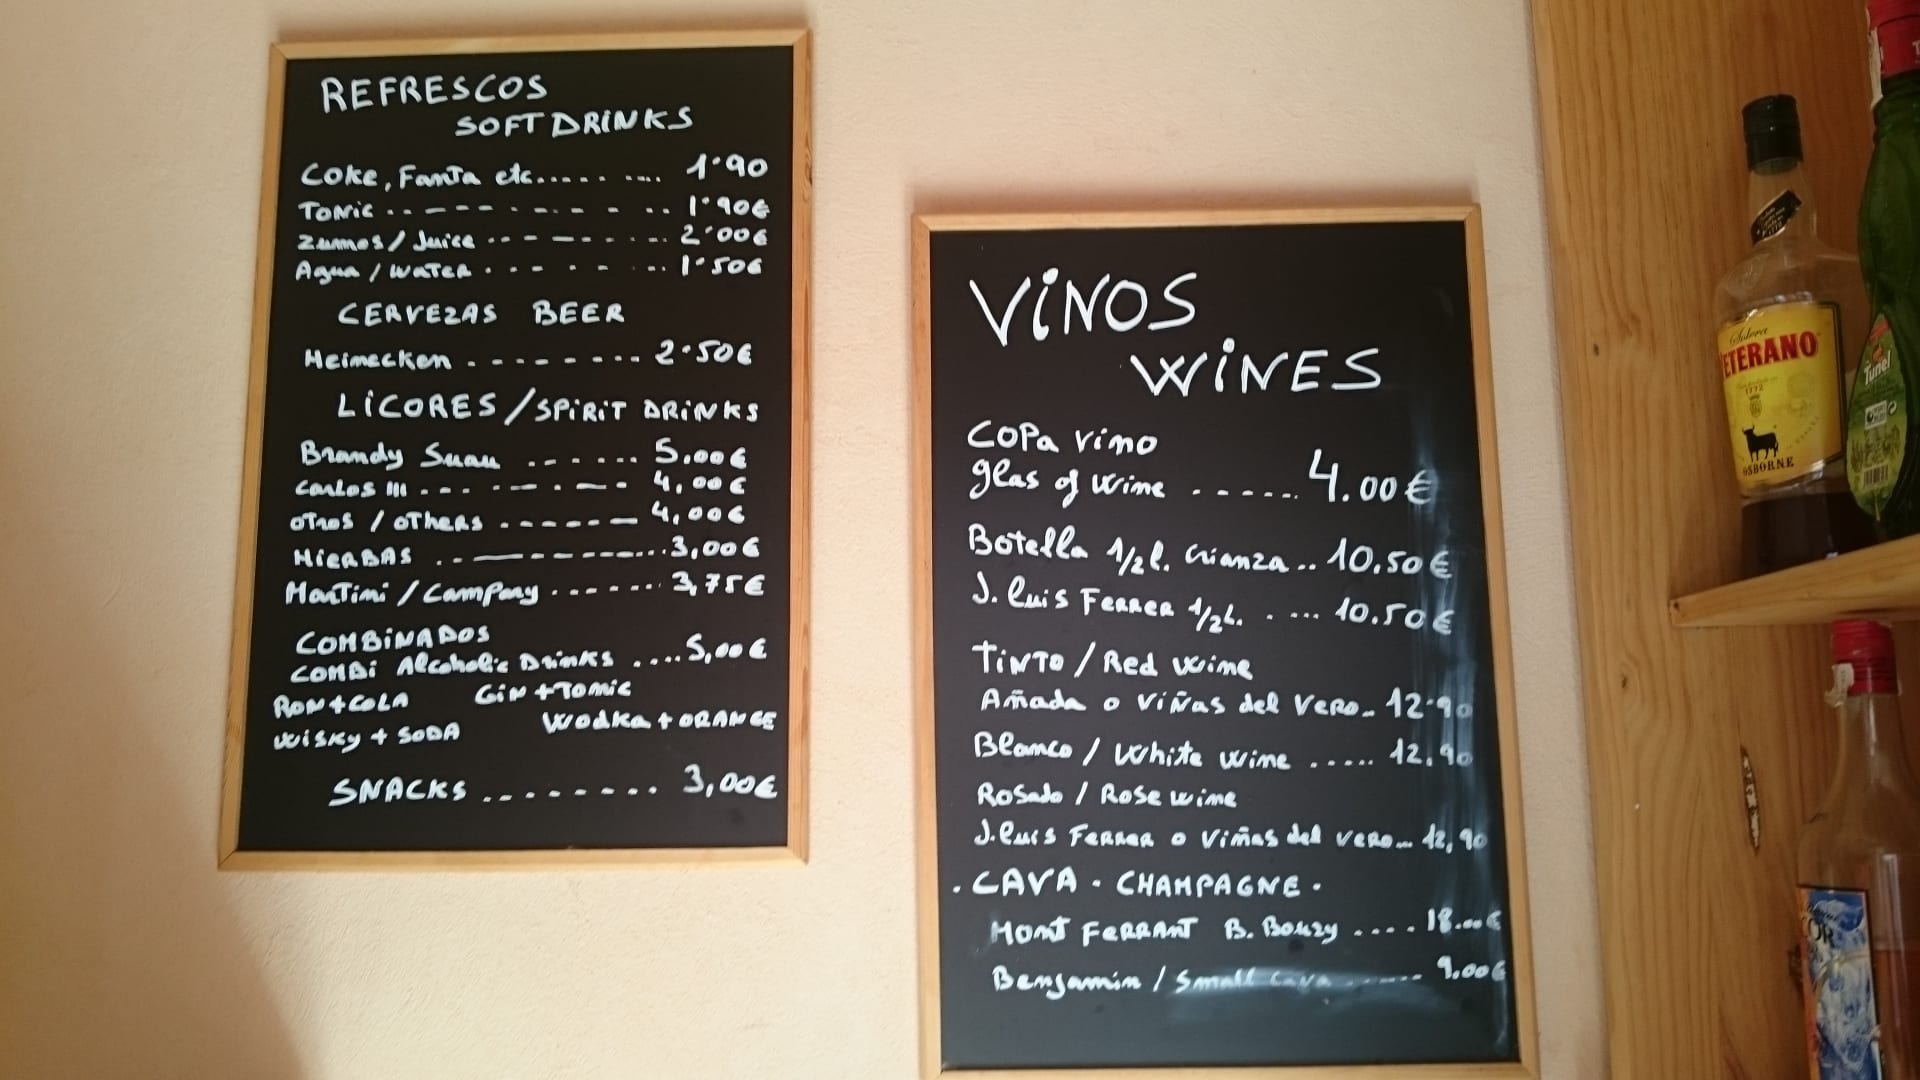 REFRESCOS
SOFT DRINKS
Coke, Fanta etc......... 1'90
Tonic .. - - - - . - . - - .. 1'90€
Zumos / Juice ... - - - - . - .. 2'00€
Agua / Water . - - - - - ... 1'50€
CERVEZAS BEER
Heinecken . - - - - - ... 2'50€
LICORES / SPIRIT DRINKS
Brandy Suau . - - .... 5,00€
Carlos III ... - - - . - - 4,00€
otros / others . - - - - - - 4,00€
HIERBAS .. - - - - - ... 3,00€
Martini / Campary ....... 3,75€
COMBINADOS
COMBi Alcoholic Drinks .... 5,00€
RON + COLA GiN + Tonic
Wisky + SODA Wodka + ORANGE
SNACKS ......... 3,00€
ViNOS
WiNES
Copa vino
glas of wine ...... 4.00€
Botella 1/2 l. crianza .. 10.50€
J. luis Ferrer 1/2 L. . ... 10.50€
TiNTO / Red wine
Añada o Viñas del Vero.. 12'90
Blanco / White wine ..... 12,90
Rosado / Rose wine
J. luis Ferrer o Viñas del vero... 12,90
. CAVA . CHAMPAGNE .
MONT FERRANT B. Bouzy .... 18.00€
Benjamin / Small Cava ..... 9.00€
Solera
ETERANO
1772
OSBORNE
Tunel
OR